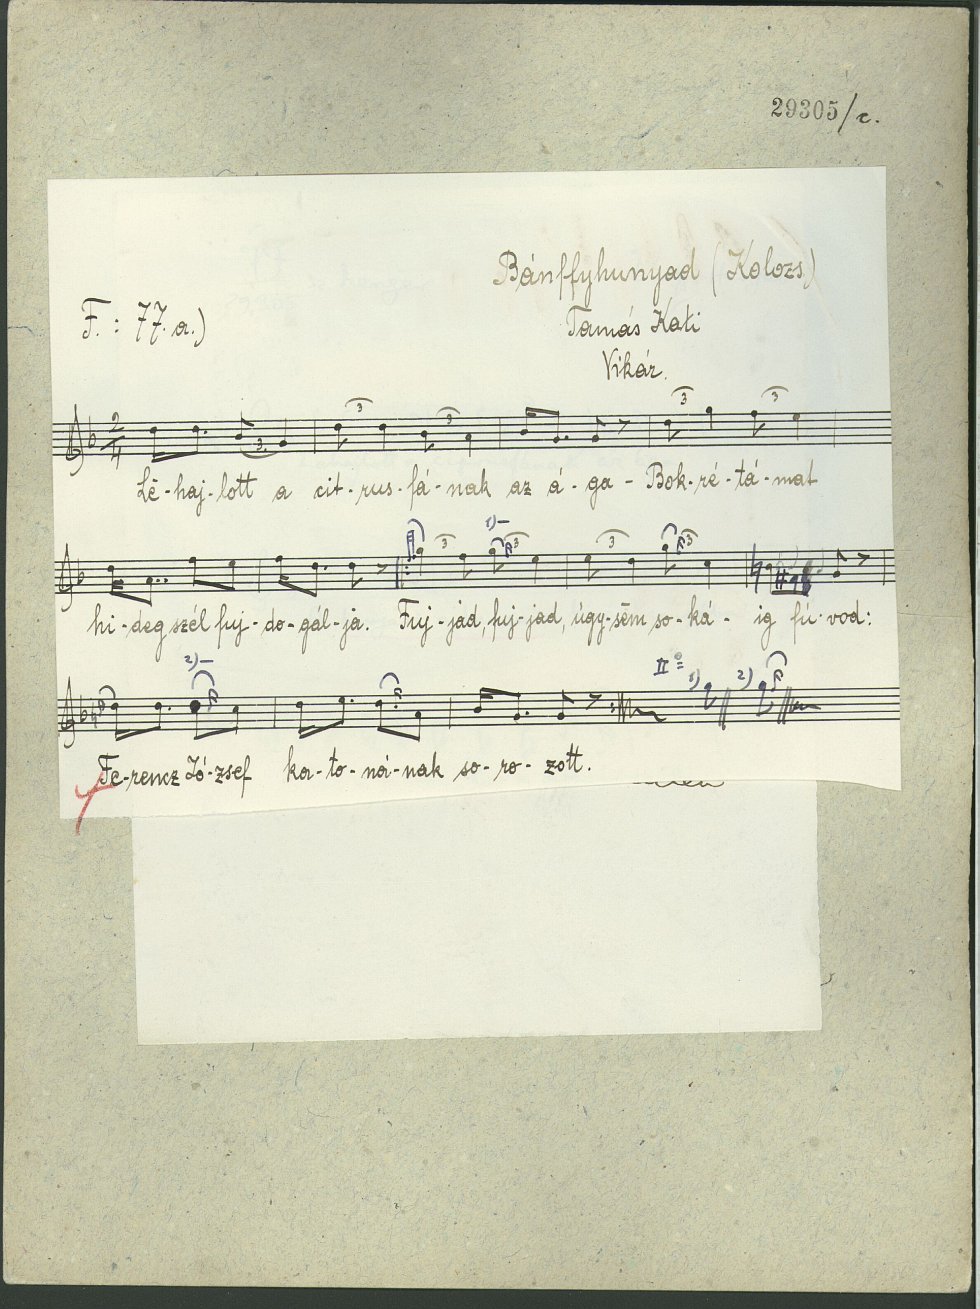 29305/c.
Bánffyhunyad (Kolozs)
F. : 77. a.)
Tamás Kati
Vikár.
2/4 3 3 3 3 3
Lē-haj-lott a cit-rus-fá-nak az á-ga - Bok-ré-tá-mat
1)- 3 3 3 3
hi-deg szél fuj-do-gál-ja. Fuj-jad, fuj-jad, úgy-sēm so-ká- ig fú-vod:
2)- II 1) 2)
Fe-rencz Jó-zsef ka-to-ná-nak so-ro-zott.